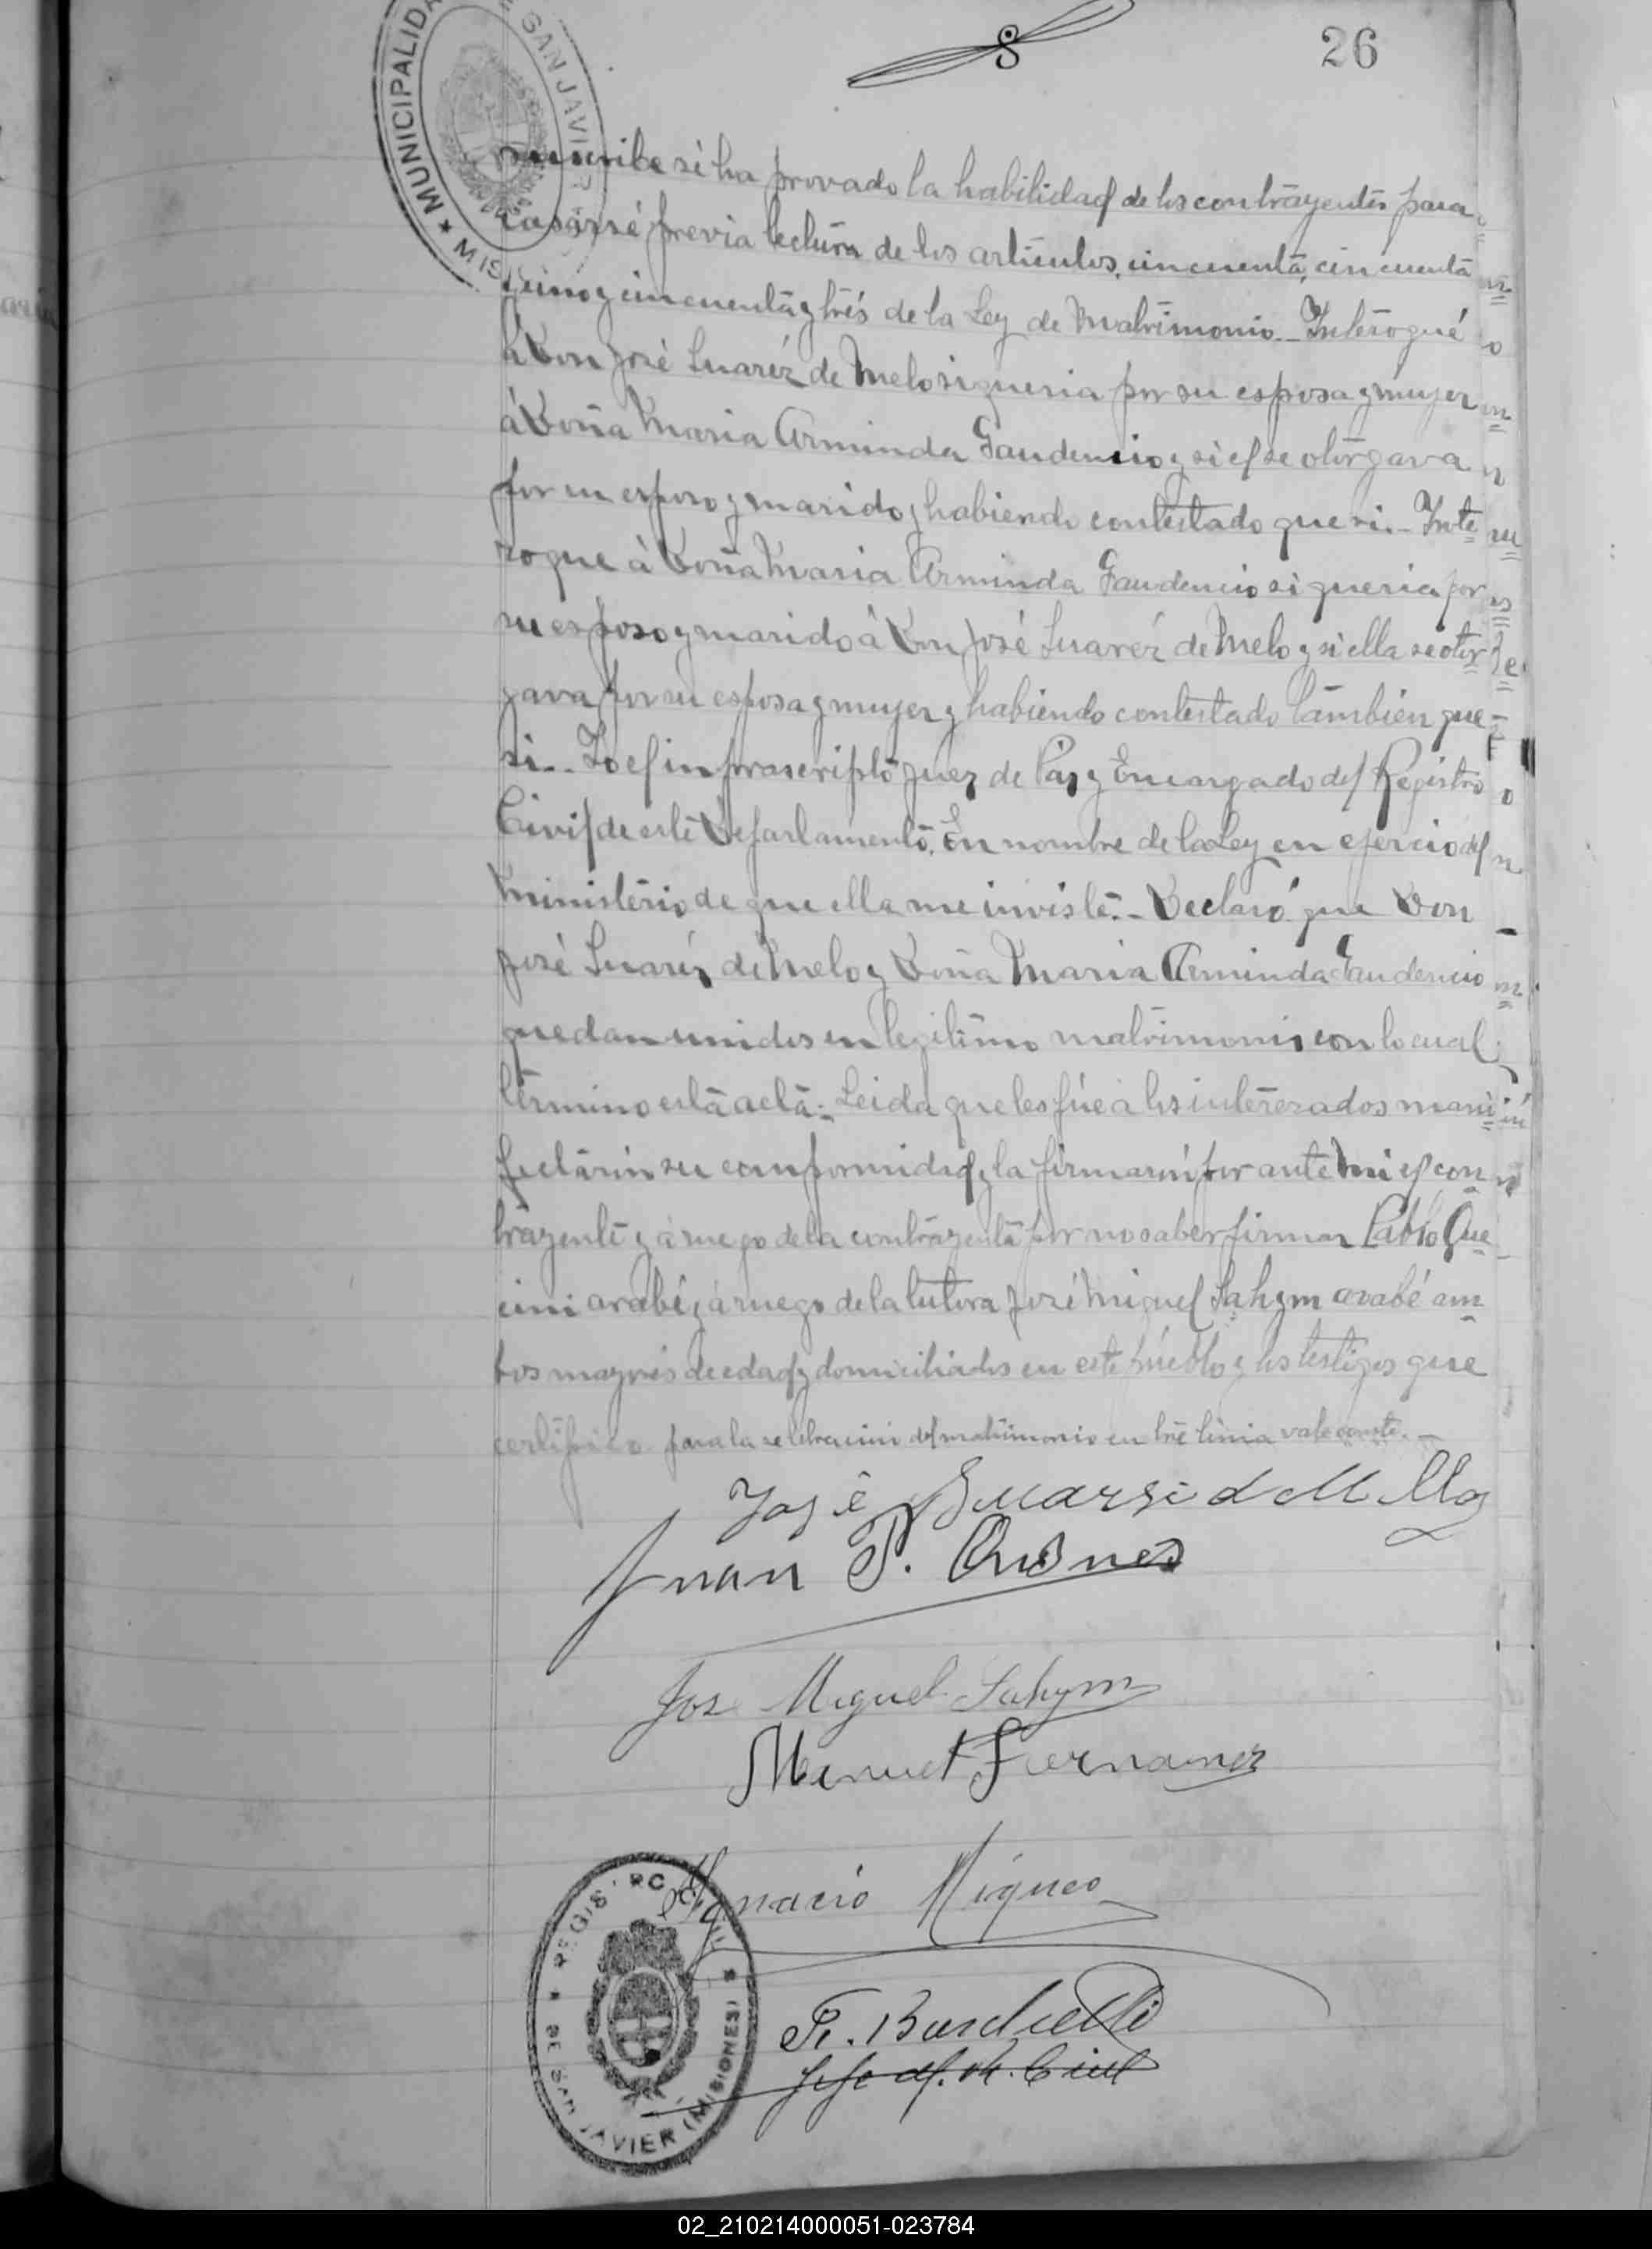 MUNICIPALIDA SAN JAVIER
★ MISI
26
suscribe si ha provado la habilidad de los contrayentes para
casarsé previa lectura de los articulos, cincuenta, cincuenta
y uno y cincuenta y trés de la Ley de Matrimonio.- Interogué
á Don José Suaréz de Melo si queria por su esposa y muger
á Doña Maria Arminda Gaudencio y si el se otorgava
por su esposo y marido y habiendo contestado que si.- Inte
rogue à Doña Maria Arminda Gaudencio si queria por
su esposo y marido à Don José Suaréz de Melo y si ella se otor
gava por su esposa y muger y habiendo contestado tambien que
si.- Yo el infrascripto Juez de Paz y Encargado del Registro
Civil de este Departamento. En nombre de la Ley en ejercio del
Ministerio de que ella me inviste.- Declaró que Don
José Suaréz de Melo y Doña Maria Arminda Gaudencio
quedan unidos en legitimo matrimonio con lo cual
termino esta acta.- Leida que les fúe a los interezados mani
festarón su conformidad y la firmarón por ante mi el con
trayente y á ruego de la contrayente por no saber firmar Pablo Que
cini arabé y á ruego de la tutora José Miguel Sahym arabé am
bos mayores de edad y domiciliados en este pueblo y los testigos que
certifico para la celebracion del matrimonio entre linia vale conste.-
José Suarse de Mello
Juan P.
Jose Miguel Sahym
Manuel Fernandez
Ygnacio Miqueo
Jefe del R. Civil
REGISTRO CIVIL
DE SAN JAVIER (MISIONES)
02_210214000051-023784